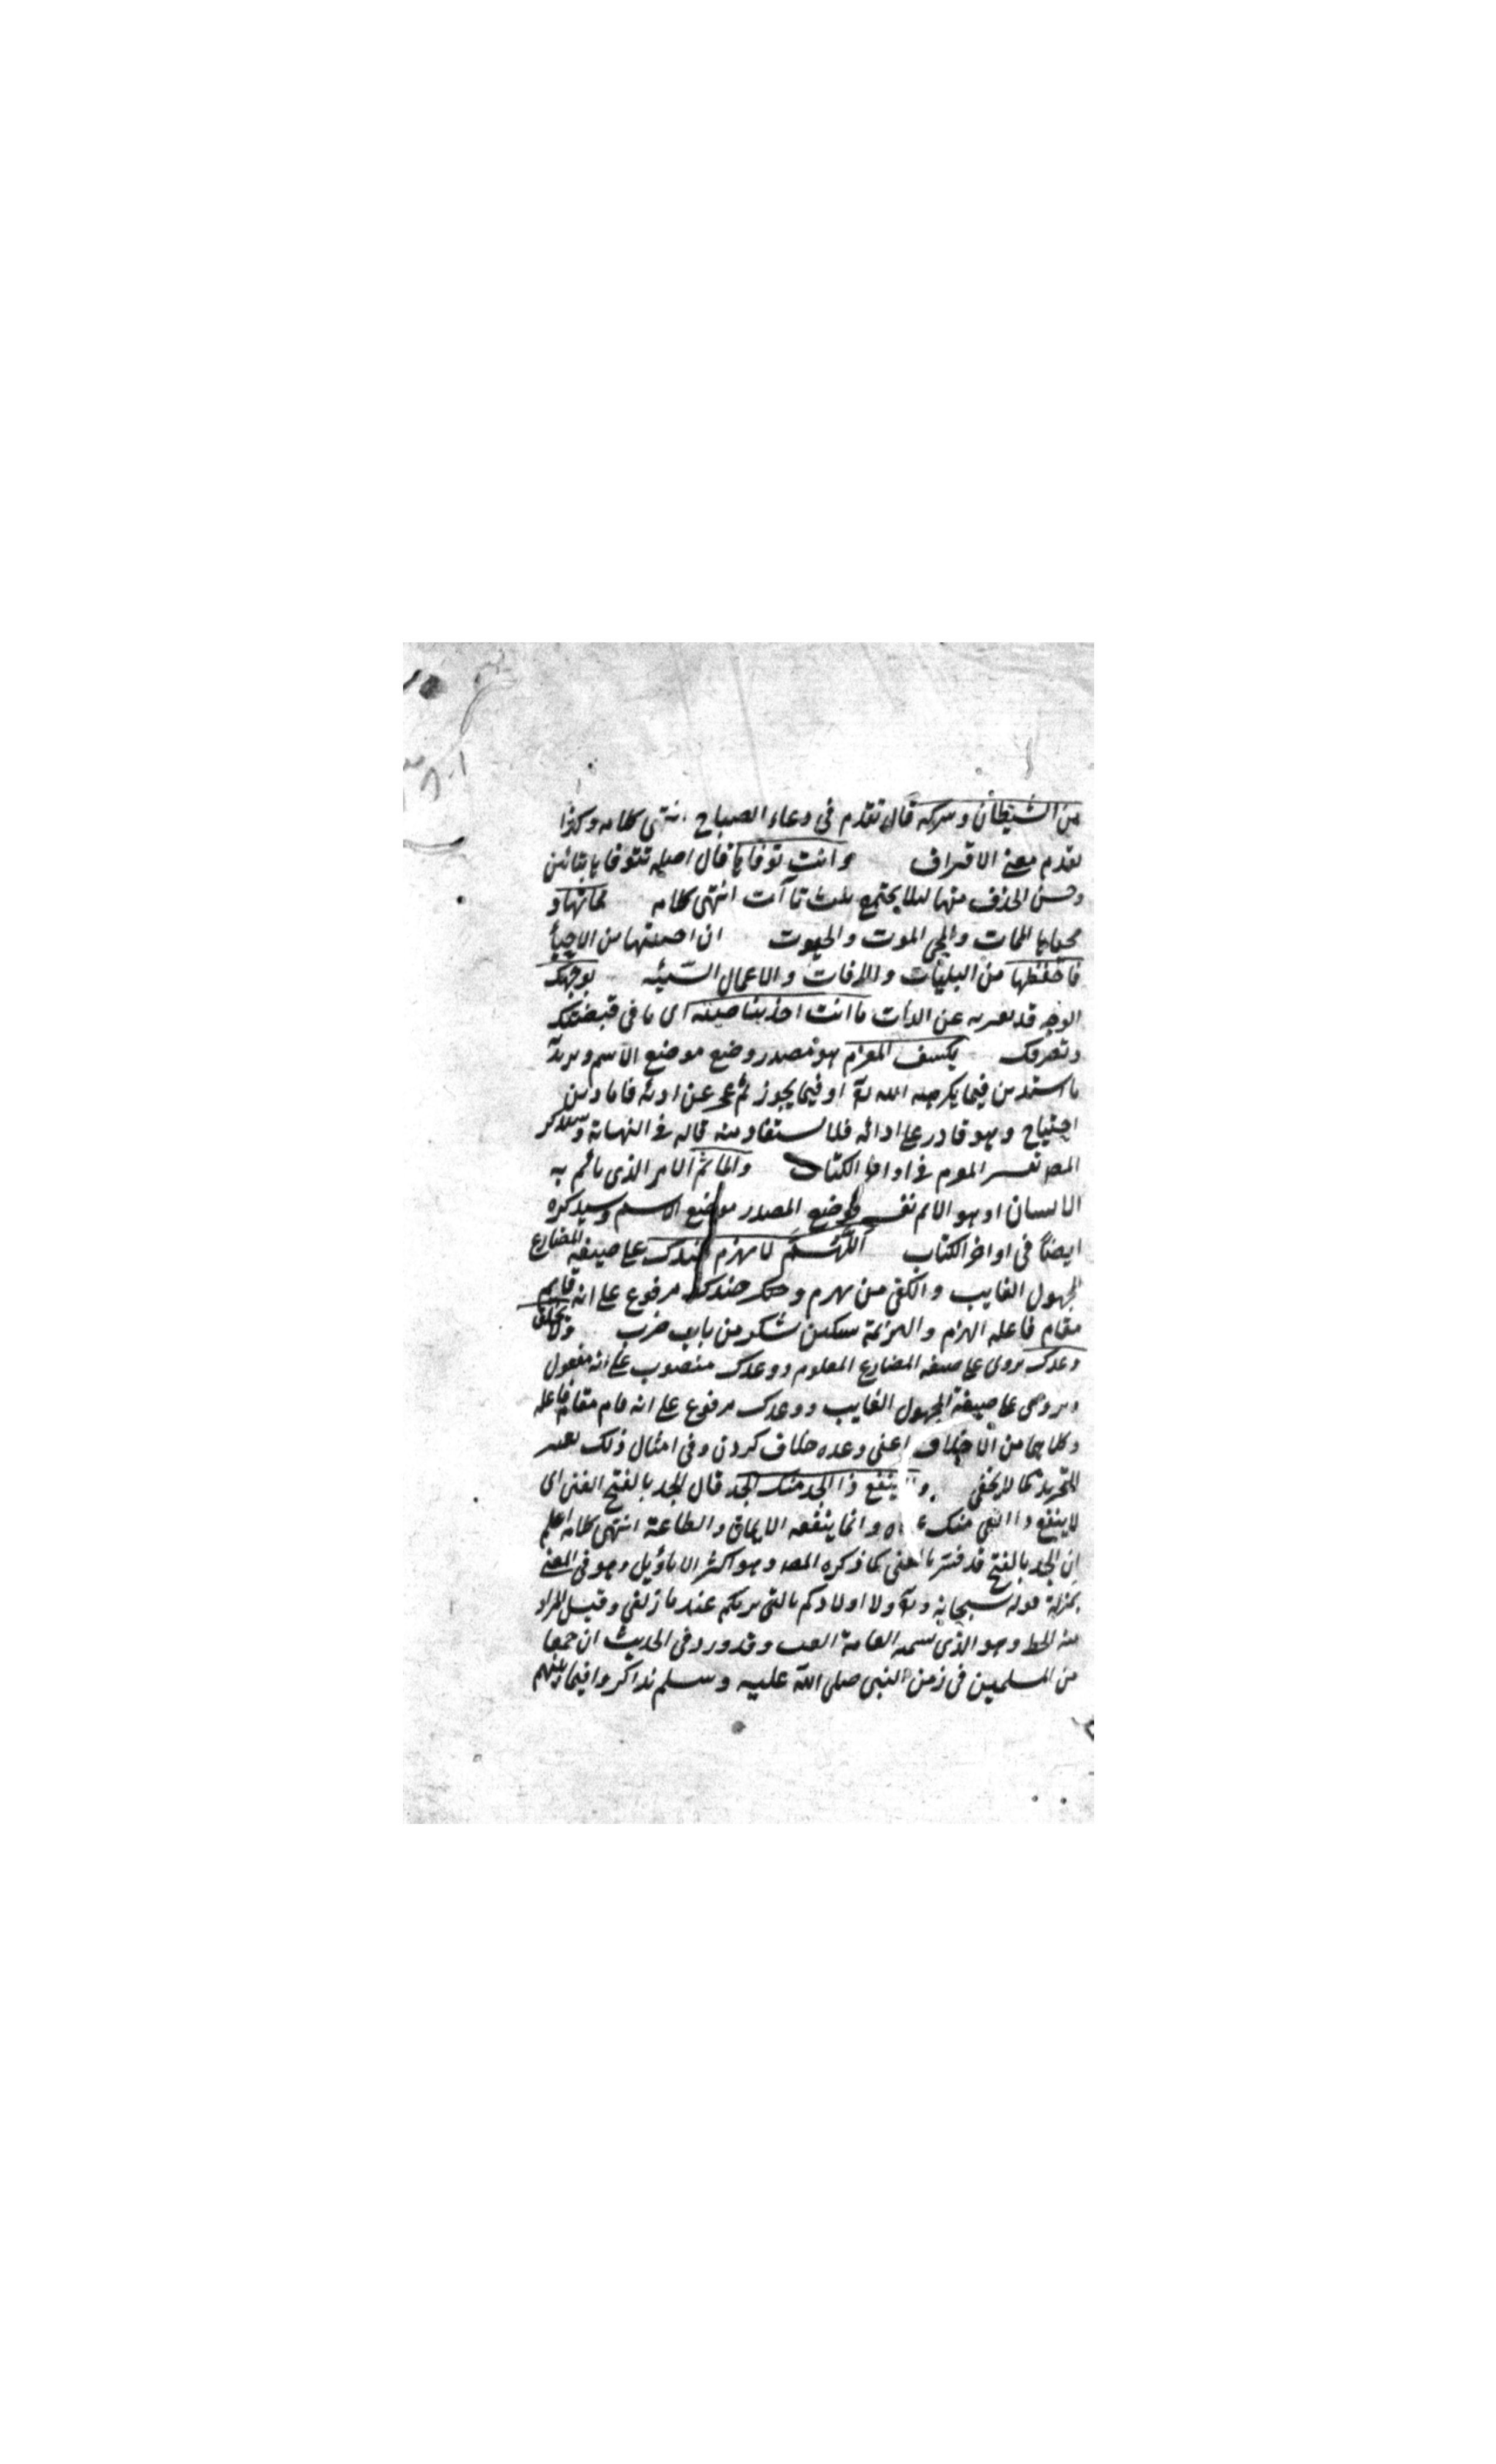 من الشيطان وشركه قال تقدم في دعاء الصباح انتهى كلامه وكذا
تقدم معنى الاقتراف وانت توفاها قال اصله تتوفاها بتائين
وحسن الحذف منها لئلا يجتمع ثلث تاآت انتهى كلامه مماتها و
محياها الممات والمحيى الموت والحيوت ان احييتها من الاحياء
فاحفظها من البليات والافات والاعمال السيئه بوجهك
الوجه قد يعبر به عن الذات ما انت اخذ بناصيته اى ما في قبضتك
وتصرفك يكشف المغرم هو مصدر وضع موضع الاسم ويريد به
ما استدين فيما يكرهه الله تع او فيما يجوز ثم عجز عن ادائه فاما دين
احتياج وهو قادر على ادائه فلا استعاذ منه قاله في النهاية وسيذكر
المصـ تفسير المغرم في اواخر الكتاب والماثم الامر الذى ياثم به
الانسان او هو الاثم نفسه وضع المصدر موضع الاسم وسيذكره
ايضاً في اواخر الكتاب اللهم لا يهزم جندك على صيغة المضارع
المجهول الغايب من هزم وجندك مرفوع على انه قايم
مقام فاعله الهزم والهزيمة شكستن لشكر من باب ضرب ولا يخلف
وعدك يروى على صيغة المضارع المعلوم ووعدك منصوب على انه مفعول
ويروى على صيغة المجهول الغايب ووعدك مرفوع على انه قام مقام فاعله
وكلاهما من الاخلاف اعنى وعده خلاف كردن وفي امثال ذلك يعتبر
التجريد كما لا يخفى ولا ينفع ذا الجد منك الجد قال الجد بالفتح الغنى اى
لا ينفع ذا الغنى منك غناه وانما ينفعه الايمان والطاعة انتهى كلامه اعلم
ان الجد بالفتح قد فسر بالغنى كما ذكره المصـ وهو اكثر التاويل وهو في المعنى
بمنزلة قوله سبحانه وتع ولا اولادكم بالتى تقربكم عندنا زلفى وقيل المراد
منه الحظ وهو الذى تسميه العامة البخت وقد ورد في الحديث ان جمعا
من المسلمين في زمن النبى صلى الله عليه وسلم تذاكروا فيما بينهم